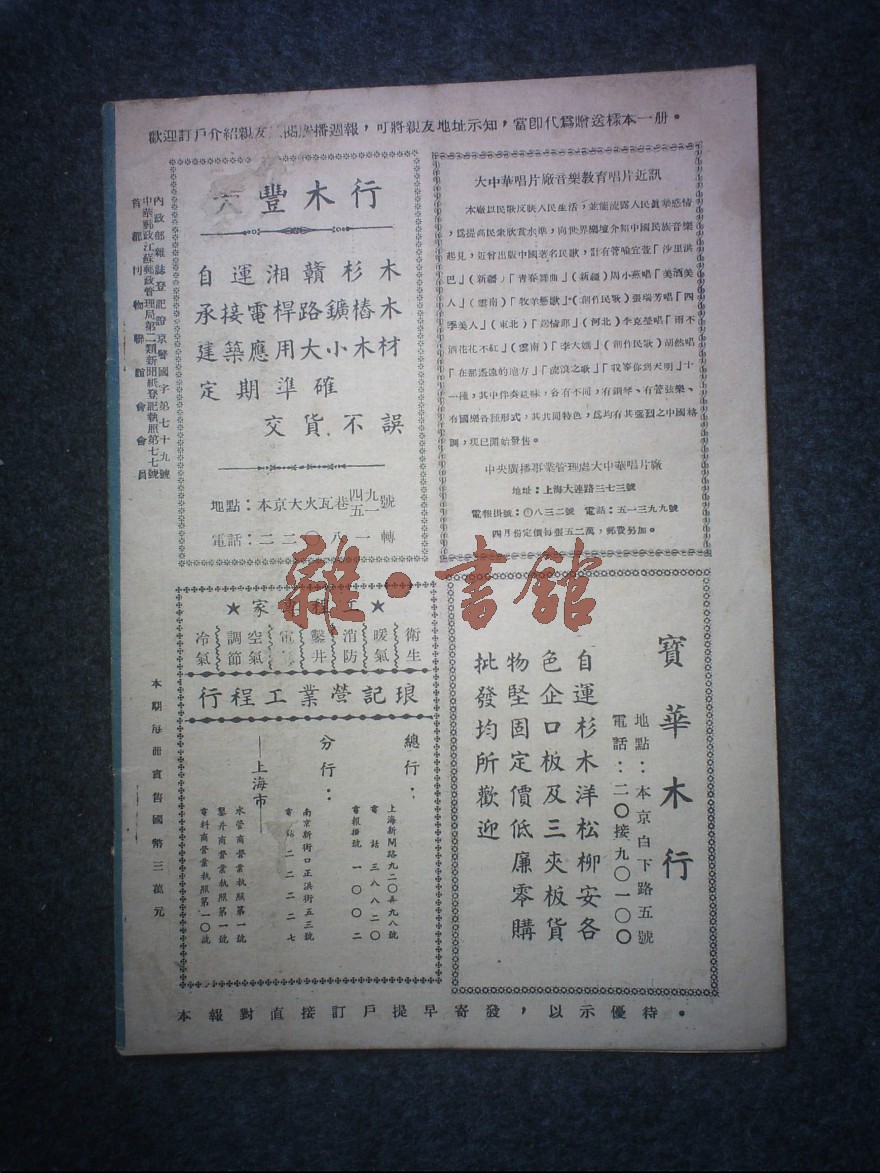 歡迎訂戶介紹親友播週報，可將親友地址示知，當即代爲贈送樣本一册。
大中華唱片廠音樂教育唱片近訊
本廠以民歌反映人民生活，並能流露人民眞摯感情
，爲提高民衆欣賞水準，向世界樂壇介紹中國民族音樂
起見，近曾出版中國著名民歌，計有管喻宜萱「沙里洪
巴」（新疆）「青春舞曲」（新疆）周小燕唱「美酒美
人」（雲南）「牧羊戀歌」（創作民歌）張瑞芳唱「四
季美人」（東北）「誇情郎」（河北）李克瑩唱「雨不
洒花花不紅」（雲南）「李大媽」（創作民歌）胡然唱
「在那遙遠的地方」「流浪之歌」「我等你到天明」十
一種，其中伴奏趣味，各有不同，有鋼琴、有管弦樂、
有國樂各種形式，其共同特色，爲均有其强烈之中國格
調，現已開始發售。
中央廣播事業管理處大中華唱片廠
地址：上海大連路三七三號
電報掛號：〇八三二號　電話：五一三九九號
四月份定價每張五二萬，郵費另加。
豐木行
自運湘贛杉木
承接電桿路鑛樁木
建築應用大小木材
定期準確
交貨不誤
地點：本京大火瓦巷四九五一號
電話：二二〇八一轉
內政部雜誌登記證京警國字第七十九號
中華郵政江蘇郵政管理局第二類新聞紙登記執照第七七號
首都刊物聯誼會會員
寶華木行
地點：本京白下路五號
電話：二〇接九〇一〇〇
自運杉木洋松柳安各
色企口板及三夾板貨
物堅固定價低廉零購
批發均所歡迎
★家專程工★
衛生
暖氣
消防
鑿井
電
空氣
調節
冷氣
行程工業營記琅
總行：
上海新閘路九二〇弄九八號
電話　三八八二〇
電報掛號　一〇〇二
分行：
南京新街口正洪街五三號
電話　二二二二七
——上海市——
水管商營業執照第一號
鑿井商營業執照第一號
電料商營業執照第一〇號
本期每册實售國幣三萬元
本報對直接訂戶提早寄發，以示優待。
雜·書館